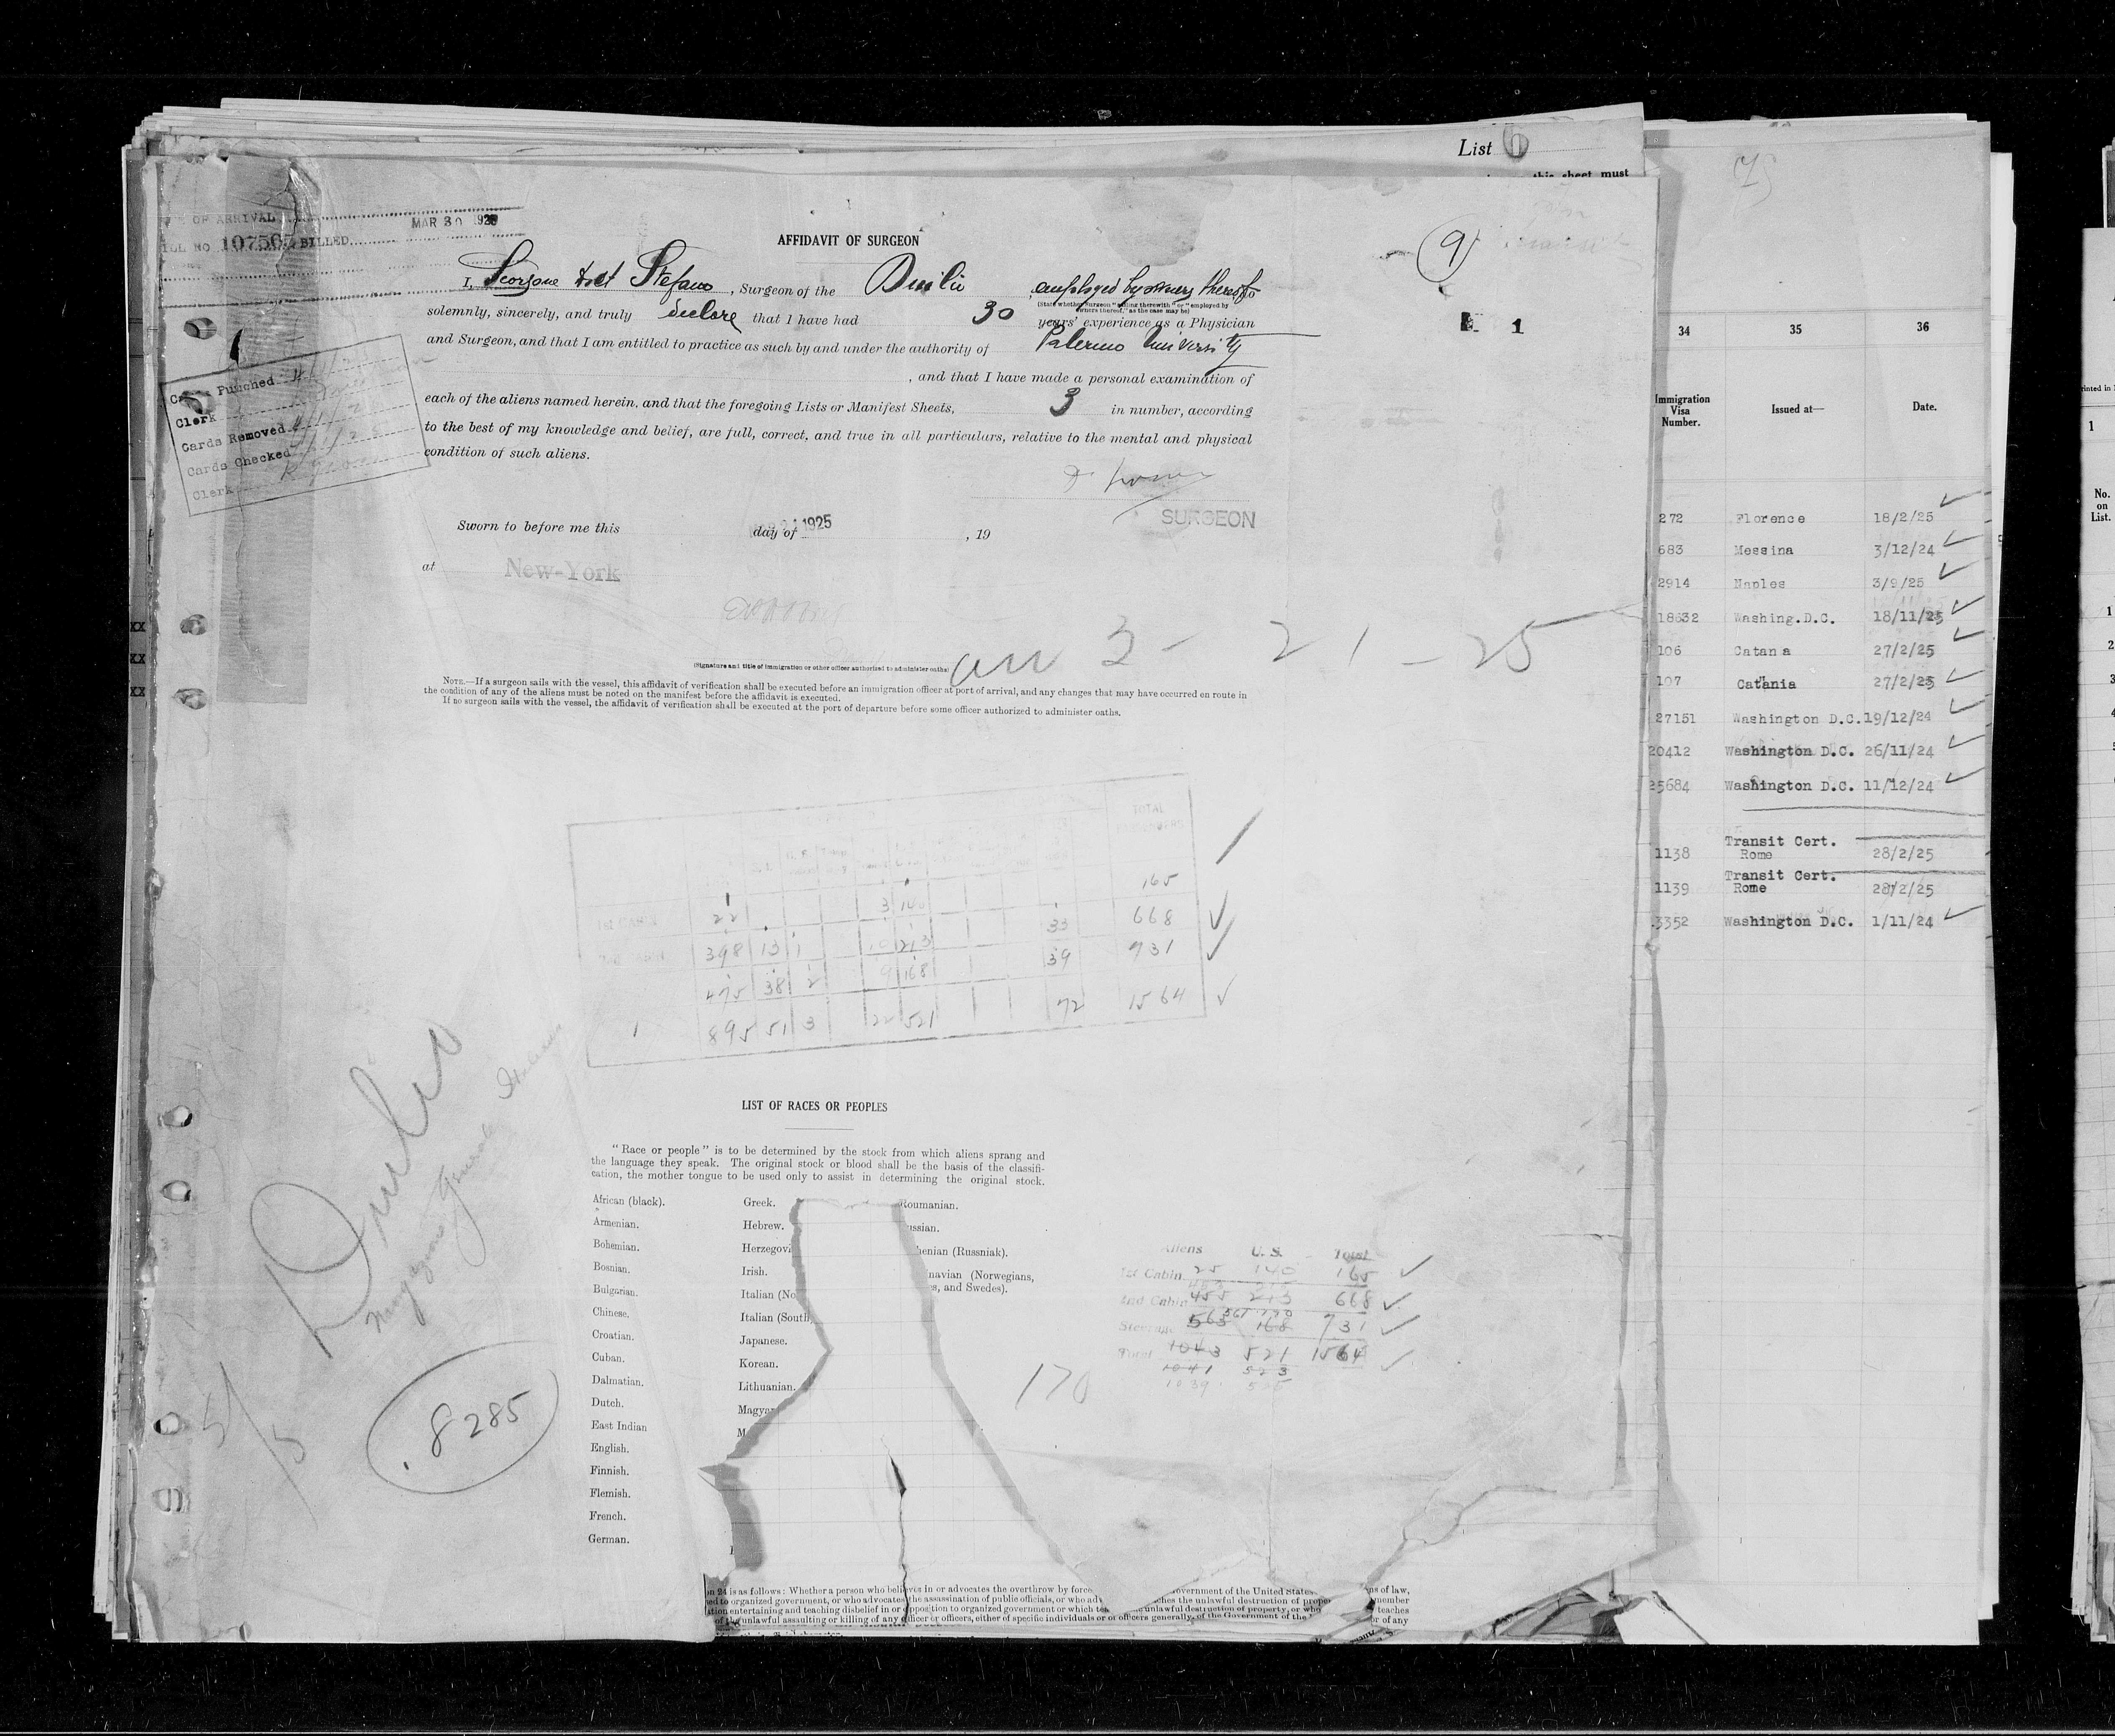 List 6
this sheet must
OF ARRIVAL
MAR 30
BILL NO 107565 BILLED
AFFIDAVIT OF SURGEON
9
I, Scorsone Dott Stefano, Surgeon of the Duilio employed by owners thereof do
(State whether Surgeon "sailing therewith" or "employed by
owners thereof," as the case may be)
solemnly, sincerely, and truly declare that I have had 30 years' experience as a Physician
and Surgeon, and that I am entitled to practice as such by and under the authority of Palermo University
, and that I have made a personal examination of
each of the aliens named herein, and that the foregoing Lists or Manifest Sheets, 3 in number, according
to the best of my knowledge and belief, are full, correct, and true in all particulars, relative to the mental and physical
condition of such aliens.
1
Cards Punched
Clerk
Cards Removed
Cards Checked
Clerk
SURGEON
Sworn to before me this day of 1925, 19
at New-York
arr 3 - 21 - 25
(Signature and title of immigration or other officer authorized to administer oaths)
NOTE.—If a surgeon sails with the vessel, this affidavit of verification shall be executed before an immigration officer at port of arrival, and any changes that may have occurred en route in
the condition of any of the aliens must be noted on the manifest before the affidavit is executed.
If no surgeon sails with the vessel, the affidavit of verification shall be executed at the port of departure before some officer authorized to administer oaths.
TOTAL
22 3 140 165
398 13 1 10 213 33 668
475 38 2 9 168 39 731
895 51 3 22 521 72 1564
Duilio
Navigazione Generale Italiana
8285
LIST OF RACES OR PEOPLES
"Race or people" is to be determined by the stock from which aliens sprang and
the language they speak. The original stock or blood shall be the basis of the classifi-
cation, the mother tongue to be used only to assist in determining the original stock.
African (black).
Armenian.
Bohemian.
Bosnian.
Bulgarian.
Chinese.
Croatian.
Cuban.
Dalmatian.
Dutch.
East Indian
English.
Finnish.
Flemish.
French.
German.
Greek.
Hebrew.
Herzegovi
Irish.
Italian (No
Italian (South
Japanese.
Korean.
Lithuanian.
Magya
M
Roumanian.
ussian.
henian (Russniak).
navian (Norwegians,
s, and Swedes).
Aliens U. S. Total
1st Cabin 25 140 165
2nd Cabin 455 213 668
Steerage 563 168 731
Total 1043 521 1564
1041 523
1039
170
on 24 is as follows: Whether a person who believes in or advocates the overthrow by force overnment of the United States ns of law,
ed to organized government, or who advocates the assassination of public officials, or who adv ches the unlawful destruction of proper member
ation entertaining and teaching disbelief in or opposition to organized government or which tea unlawful destruction of property, or who teaches
of the unlawful assaulting or killing of any officer or officers, either of specific individuals or of officers generally, of the Government of the or of any
34 35 36
Immigration Visa Number. Issued at— Date.
272 Florence 18/2/25
683 Messina 3/12/24
2914 Naples 3/9/25
18632 Washing.D.C. 18/11/25
106 Catania 27/2/25
107 Catania 27/2/25
27151 Washington D.C. 19/12/24
20412 Washington D.C. 26/11/24
25684 Washington D.C. 11/12/24
Transit Cert.
1138 Rome 28/2/25
Transit Cert.
1139 Rome 28/2/25
3352 Washington D.C. 1/11/24
rinted in
1
No.
on
List.
1
2
3
4
5